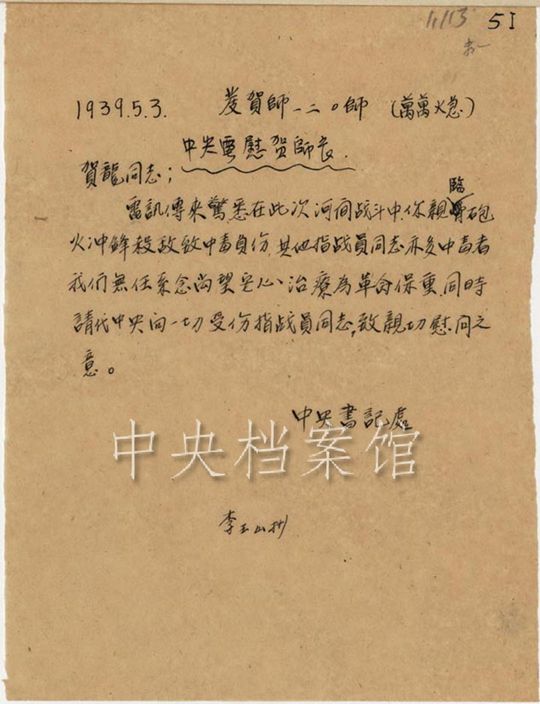 1113 5I
1939.5.3. 發賀師一二〇師 (萬萬火急)
中央電慰贺師長
賀龍同志;
電訊傳來驚悉在此次河间战斗中,你親臨砲
火冲鋒殺敌致中毒負伤,其他指战員同志亦多中毒者
我們無任系念尚望安心治療為革命保重,同時
請代中央向一切受伤指战員同志,致親切慰问之
意。
中央書記處
中央档案馆
李玉山抄